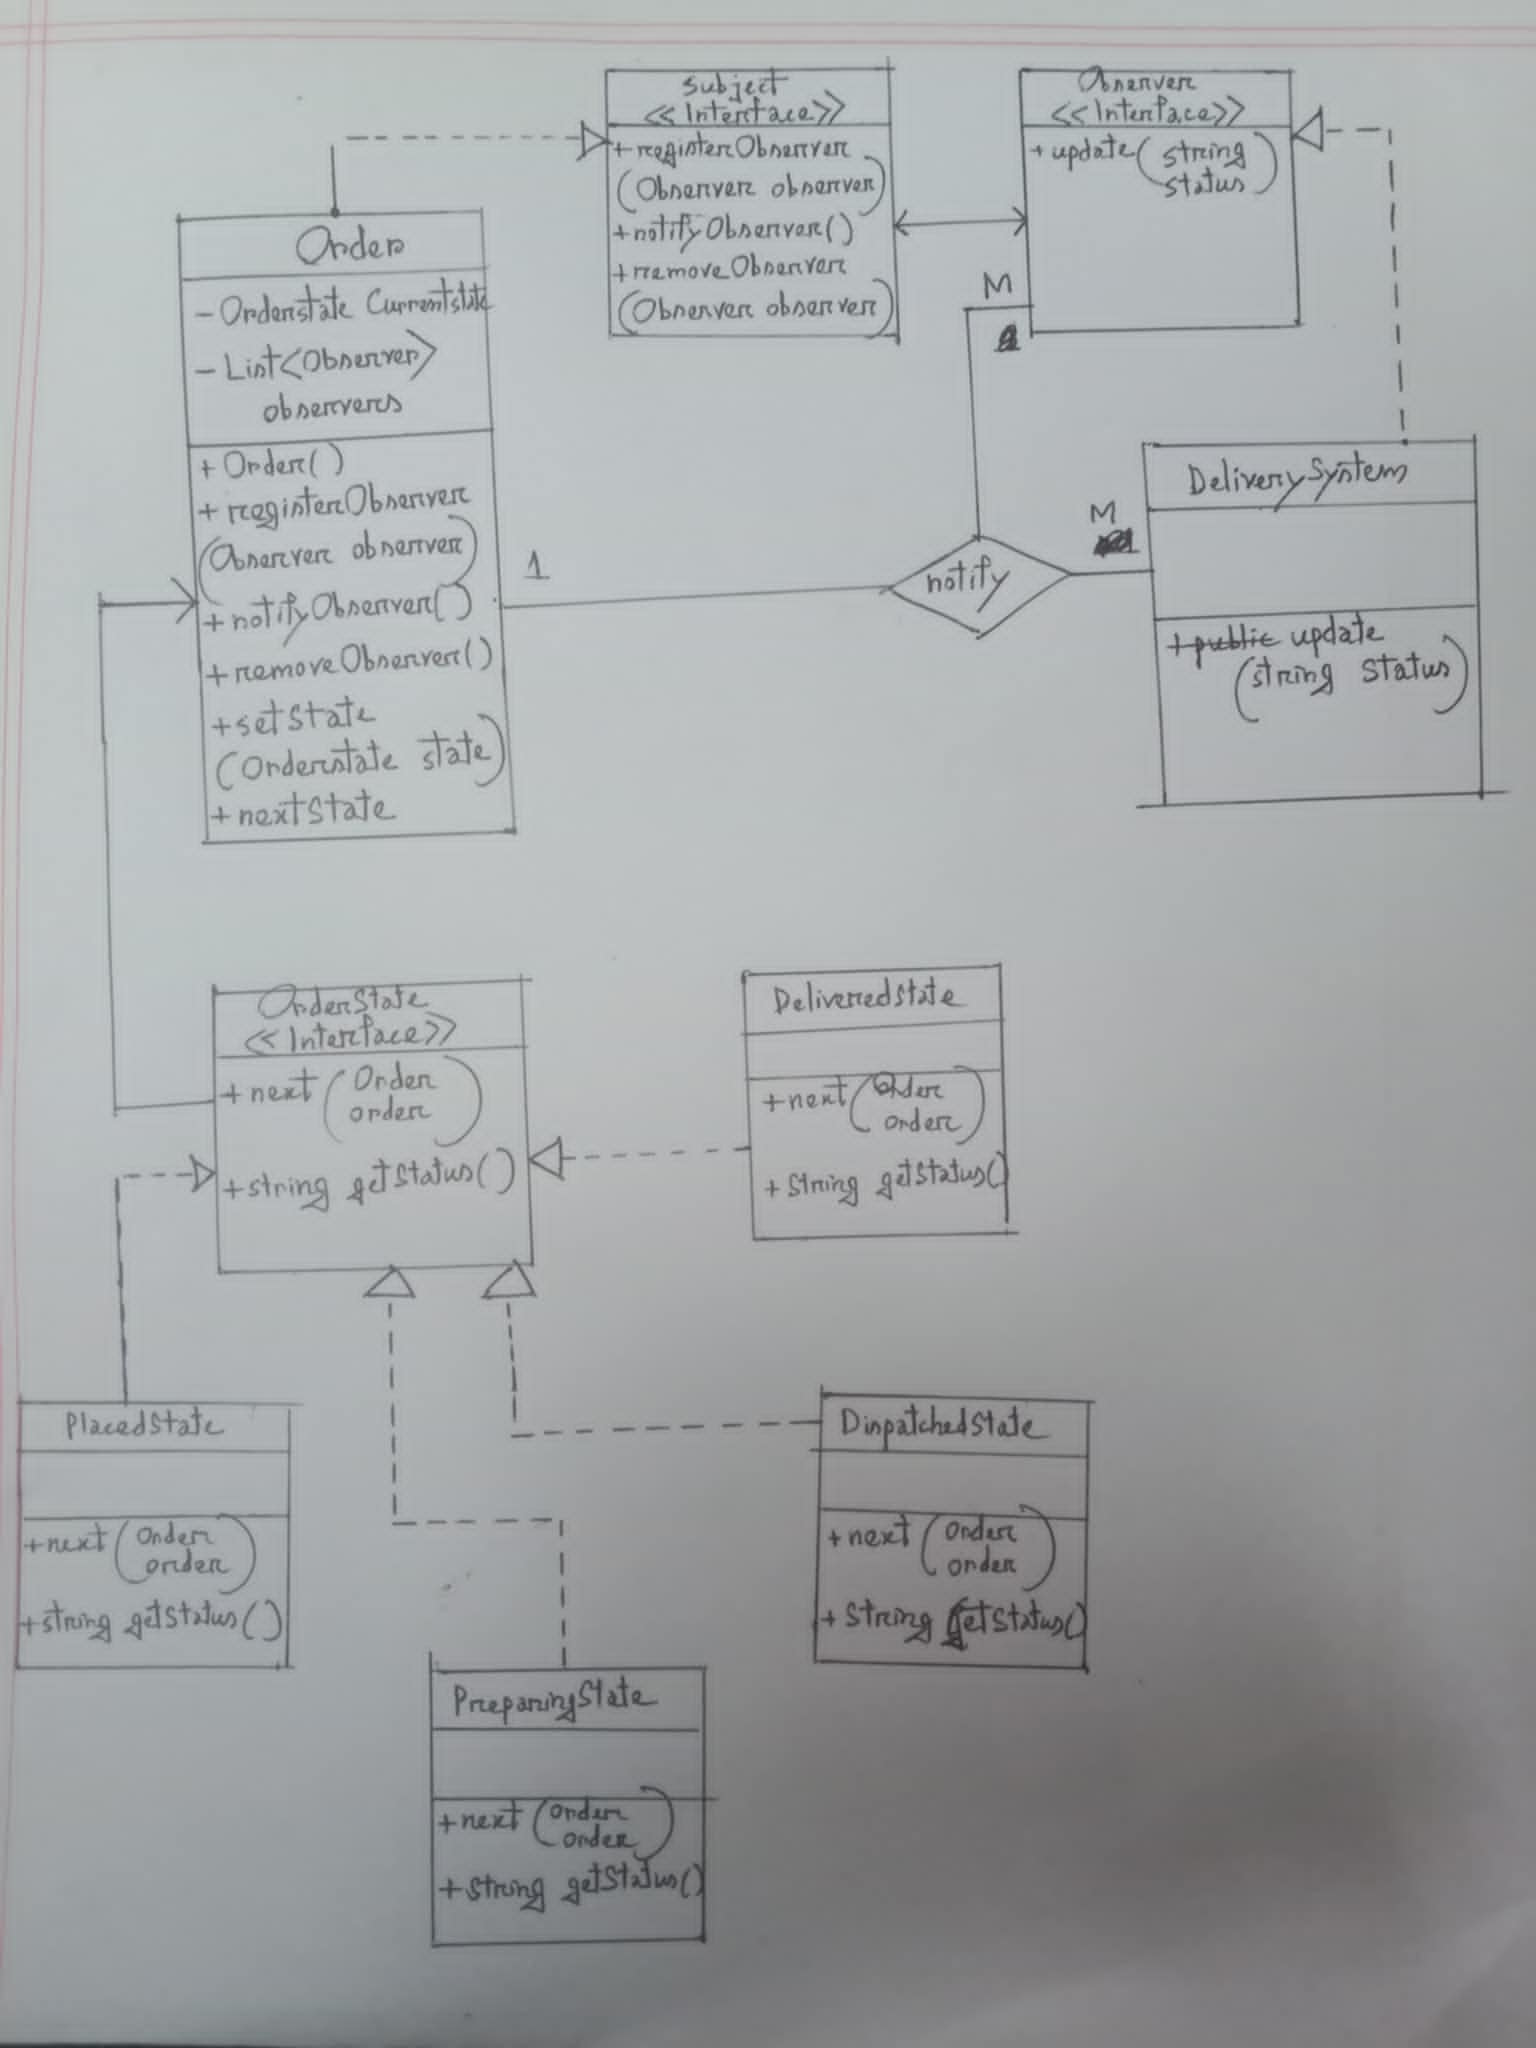 Subject
<<Interface>>
+ registerObserver
(Observer observer)
+ notifyObserver()
+ removeObserver
(Observer observer)
Observer
<<Interface>>
+ update(string
status)
M
Order
- Orderstate Currentstate
- List<Observer>
observers
+ Order()
+ registerObserver
(Observer observer)
+ notifyObserver()
+ removeObserver()
+ setState
(Orderstate state)
+ nextState
1
notify
M
DeliverySystem
+ public update
(string status)
OrderState
<<Interface>>
+ next (Order
order)
+ string getStatus()
Deliveredstate
+ next (Order
order)
+ String getStatus()
PlacedState
+ next (Order
order)
+ string getStatus()
DispatchedState
+ next (Order
order)
+ String getStatus()
PreparingState
+ next (order
order)
+ string getStatus()